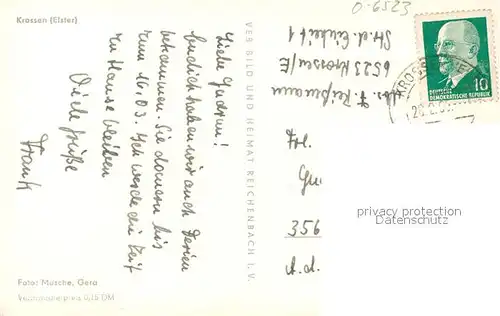 Krossen (Elster)
O-6523
Liebe Gudrun!
Endlich haben wir auch Ferien
bekommen. Sie dauern bis
zum 16.03. Ich werde die Zeit
zu Hause bleiben
Dich grüße
Frank
VEB BILD UND HEIMAT REICHENBACH I. V.
Abs. F. Reißmann
6523 Krossen/E
Str. d. Einheit 1
10
DEUTSCHE
DEMOKRATISCHE REPUBLIK
KROSSEN
356
privacy protection
Datenschutz
Foto: Musche, Gera
Verbraucherpreis 0,15 DM